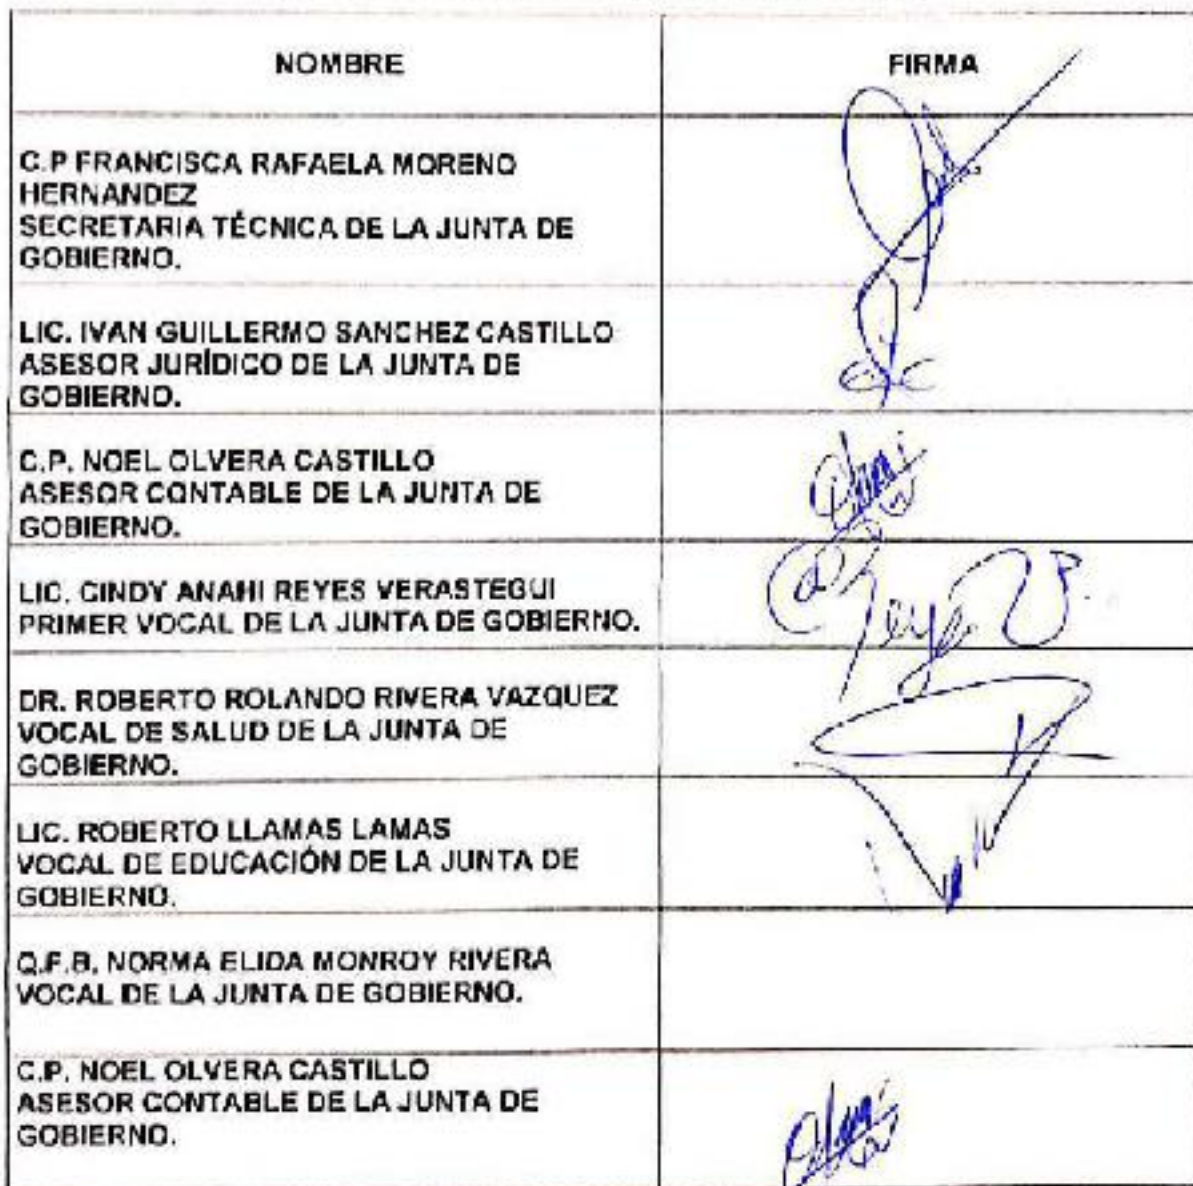 NOMBRE FIRMA
C.P FRANCISCA RAFAELA MORENO
HERNANDEZ
SECRETARIA TÉCNICA DE LA JUNTA DE
GOBIERNO.
LIC. IVAN GUILLERMO SANCHEZ CASTILLO
ASESOR JURÍDICO DE LA JUNTA DE
GOBIERNO.
C.P. NOEL OLVERA CASTILLO
ASESOR CONTABLE DE LA JUNTA DE
GOBIERNO.
LIC. CINDY ANAHI REYES VERASTEGUI
PRIMER VOCAL DE LA JUNTA DE GOBIERNO.
DR. ROBERTO ROLANDO RIVERA VAZQUEZ
VOCAL DE SALUD DE LA JUNTA DE
GOBIERNO.
LIC. ROBERTO LLAMAS LAMAS
VOCAL DE EDUCACIÓN DE LA JUNTA DE
GOBIERNO.
Q.F.B. NORMA ELIDA MONROY RIVERA
VOCAL DE LA JUNTA DE GOBIERNO.
C.P. NOEL OLVERA CASTILLO
ASESOR CONTABLE DE LA JUNTA DE
GOBIERNO.